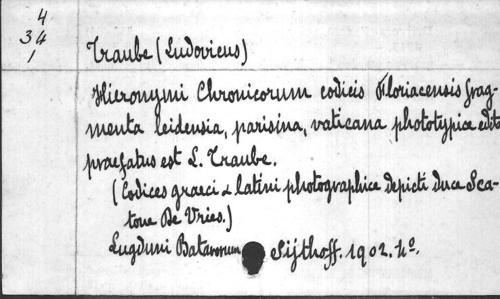 4
34
1
Traube (Ludovicus)
Hieronymi Chronicorum codicis Floriacensis frag-
menta leidensia, parisina, vaticana phototypice edita
praefatus est L. Traube.
(Codices graeci & latini photographice depicti duce Sca-
tone De Vries.)
Lugduni Batavorum Sijthoff. 1902. 4º.